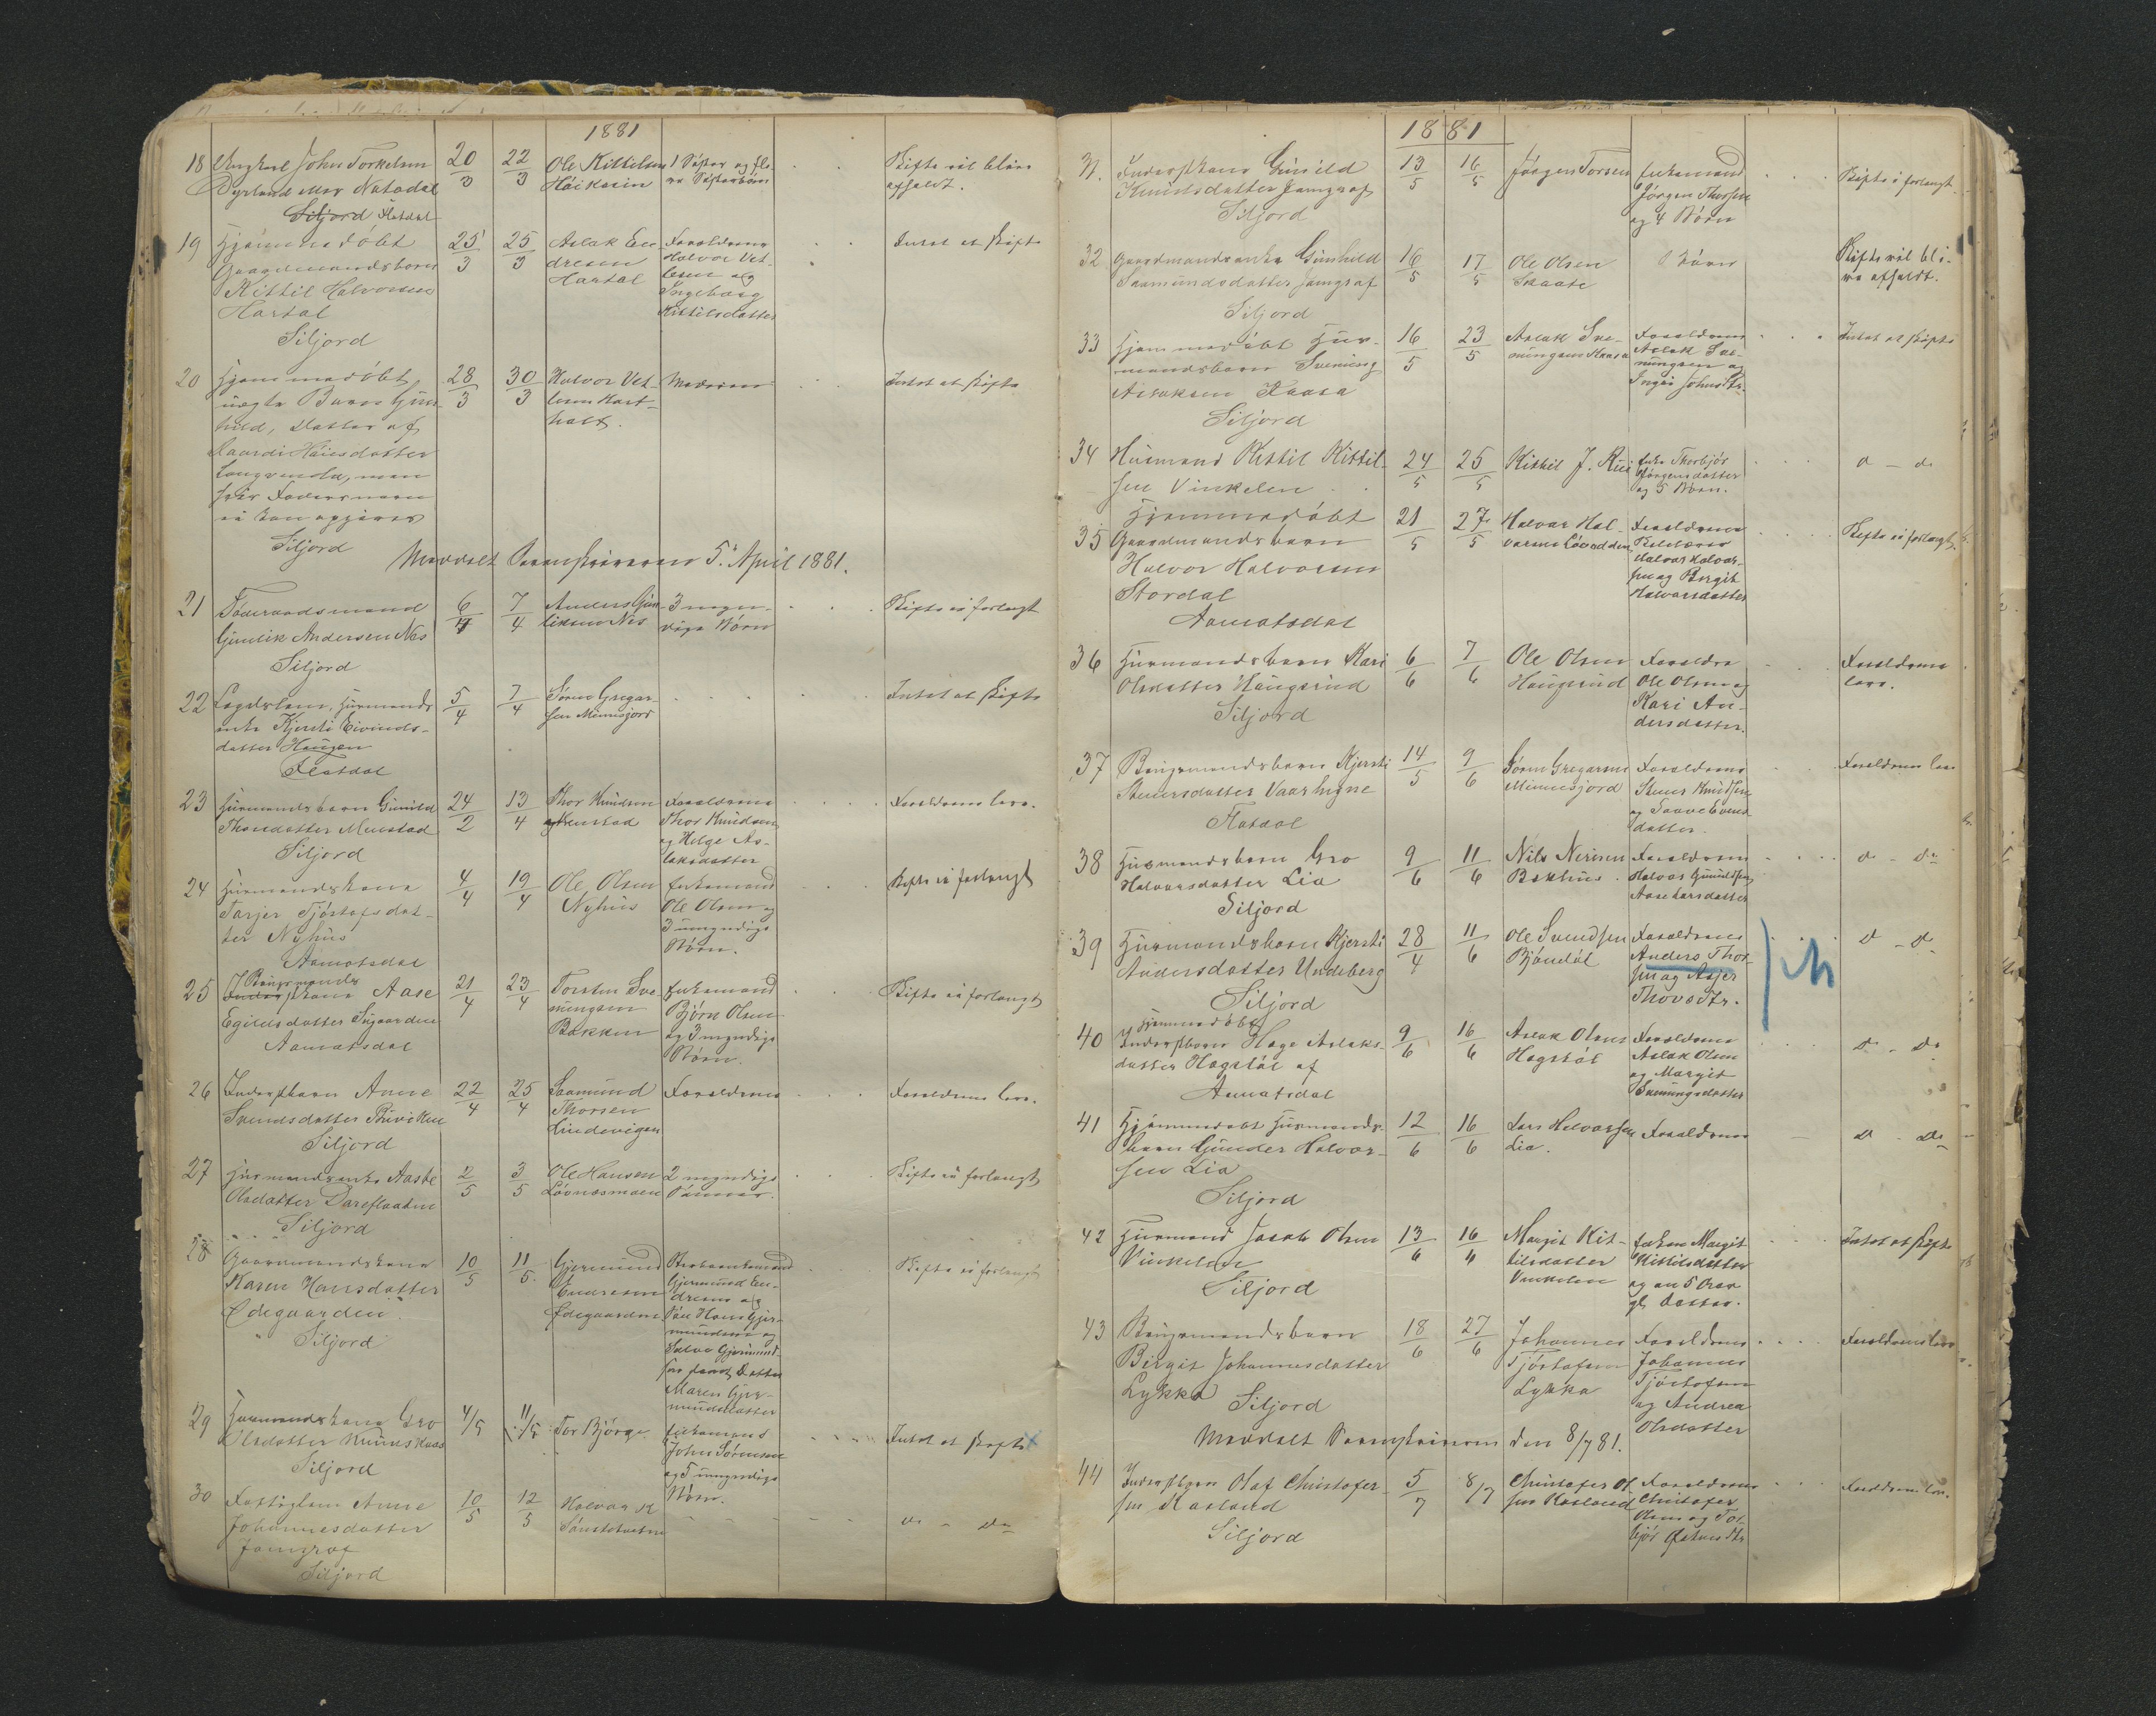 1881
18 Ungkarl John Torkelsen
Dyrland Natadal
Siljord Flatdal
20/3
22/3
Ole Kittilsen
1 Søster og fle-
re Søsterbørn
Skifte vil blive
afholdt.
19 Hjemmedøbt
Gaardmandsbarn
Kittil Halvorsen
Hartal
Siljord
25/3
25/3
Aslak En-
dresen
Hartal
Forældrene
Halvor Vet-
lesen og
Ingeborg
Kittilsdatter
Intet at skifte
20 Hjemmedøbt
uægte Barn Gun-
hild, Datter af
men
Fadersnavn
ei kan opgives
Siljord
28/3
30/3
Halvor Vet-
lesen Hart-
Moderen
Intet at skifte
Meddelt Sorenskriveren 5. April 1881.
21 Føderaadsmand
Gunlik Andersen Næs
Siljord
6/4
7/4
Anders Gun-
liksen Næs
3 myn-
dige Børn
Skifte ei forlangt
22 Lægdslem, Husmands-
enke Kjersti Eivinds-
datter Haugen
Flatdal
5/4
7/4
Søren Gregar-
sen Minnesjord
Intet at skifte
23 Husmandsbarn Gunild
Thorsdatter Menstad
Siljord
24/2
13/4
Thor Knudsen
Menstad
Forældrene
Thor Knudsen
og Helge As-
laksdatter
Forældrene leve.
24 Husmandskone
Tarjer Tjøstofsdat-
ter Nyhus
Aamotsdal
4/4
19/4
Ole Olsen
Nyhus
Enkemand
Ole Olsen og
3 umyndige
Børn.
Skifte ei forlangt
25 Brugsmands
kone Aase
Egilsdatter
Aamotsdal
21/4
23/4
Torsten Sve-
nungsen
Bakken
Enkemand
Bjørn Olsen
og 3 myndige
Børn.
Skifte ei forlangt
26 Inderstbarn Anne
Svendsdatter
Siljord
22/4
25/4
Saamund
Thorsen
Lindevigen
Forældrene
Forældrene leve.
27 Husmandsenke Aaste
Olsdatter
Siljord
2/5
3/5
Ole Hansen
Løvnæsmoen
2 myndige
Sønner.
Skifte ei forlangt
28 Gaardmandskone
Karen Hansdatter
Ødegaarden
Siljord
10/5
11/5
Gjermund
Endresen
Ødegaarden
Gjermund En-
dresen og
Søn Hans Gjer-
mundsen og
Gjermund-
Datter
Maren Gjer-
mundsdatter
Skifte ei forlangt
29 Husmandskone Gro
Olsdatter
Siljord
4/5
11/5
Tor Bjørge
Enkemand
John Sørensen
og 5 umyndige
Børn.
Intet at skifte
30 Fattiglem Anne
Johannesdatter
Jamgraf
Siljord
10/5
12/5
Halvor
do - do
1881
31. Inderstkone Gunild
Knudsdatter Jamgraf
Siljord
13/5
16/5
Jørgen Torsen
Enkemand
Jørgen Thorsen
og 4 Børn
Skifte ei forlangt
32 Gaardmandsenke Gunhild
Saamundsdatter Jamgraf
Siljord
16/5
17/5
Ole Olsen
Skaate
Børn
Skifte vil bli-
ve afholdt.
33 Hjemmedøbt Hus-
mandsbarn Svenung
Aslaksen Kaasa
Siljord
16/5
23/5
Aslak Sve-
nungsen Kaasa
Forældrene
Aslak Sve-
nungsen og
Inger Johnsdtr.
Intet at skifte
34 Husmand Kittil Kittil-
sen Vinkelen
24/5
25/5
Kittil J.
Enke Thorbjør
Jørgensdatter
og 5 Børn.
do - do
35 Hjemmedøbt
Gaardmandsbarn
Halvor Halvorsen
Stordal
Aamotsdal
21/5
27/5
Halvor Hal-
vorsen
Forældrene
Halvor Halvor-
sen og Bergit
Halvorsdatter
Skifte ei forlangt.
36 Husmandsbarn Kari
Olsdatter Haugerud
Siljord
6/6
7/6
Ole Olsen
Haugerud
Forældre
Ole Olsen og
Kari An-
dersdatter.
Forældrene
leve.
37 Brugsmandsbarn Kjersti
Steinersdatter
Flatdal
14/5
9/6
Søren Gregarsen
Minnesjord
Forældrene
Knudsen
og
datter.
Forældrene leve
38 Husmandsbarn Gro
Halvorsdatter Lia
Siljord
9/6
11/6
Nils Nirisen
Bakhus.
Forældrene
Halvor Gunildsen
Aase Larsdatter
do - do
39 Husmandsbarn Kjersti
Andersdatter Undeberg
Siljord
28/4
11/6
Ole Svendsen
Bjøndal
Forældrene
Anders Thor-
sen og Asjer
Thovsdtr.
do - do
40 Hjemmedøbt
Inderstbarn Hæge Aslaks-
datter Hagstøl af
Aamotsdal
9/6
16/6
Aslak Olsen
Hagstøl
Forældrene
Aslak Olsen
og Margit
Svenungsdatter
do - do
41 Hjemmedøbt Husmands-
barn Gunder Halvor-
sen Lia
Siljord
12/6
16/6
Lars Halvorsen
Lia.
Forældrene
do - do
42 Husmand Jacob Olsen
Vinkelen
Siljord
13/6
16/6
Margit Kit-
tilsdatter
Vinkelen
Enken Margit
Kittilsdatter
og en 5 Aar
gl. Datter.
Intet at skifte
43 Brugsmandsbarn
Birgit Johannesdatter
Lykka Siljord
18/6
27/6
Johannes
Tjøstofsen
Lykka
Forældrene
Johannes
Tjøstofsen
og Andrea
Olsdatter
Forældrene leve
Meddelt Sorenskriveren den 8/7 81.
44 Inderstbarn Olaf Christofer-
sen Kasland
Siljord
5/7
8/7
Christofer Ol-
sen Kasland
Forældrene
Christofer
Olsen og Tor-
bjør
Forældrene leve.